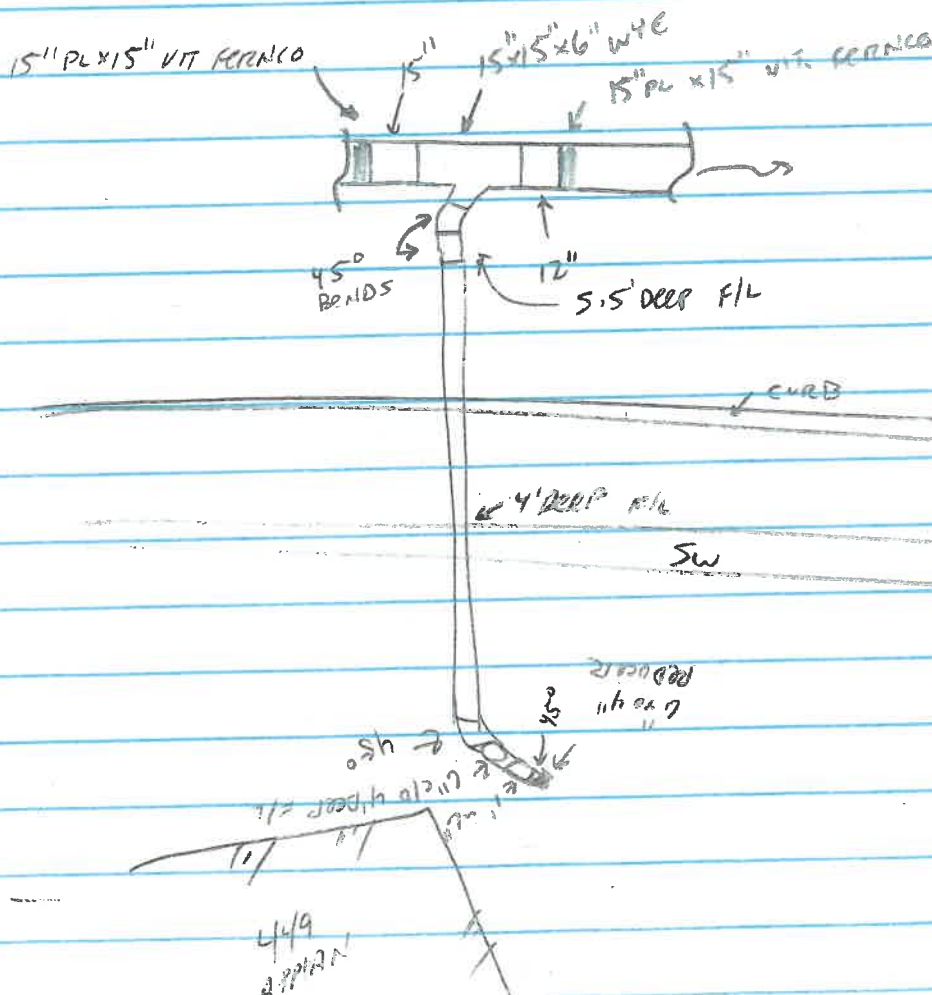 15" PL x 15" VIT FERNCO
15"
15"x15"x6" WYE
15" PL x 15" VIT. FERNCO
45°
BENDS
12"
5.5' DEEP F/L
CURB
4' DEEP F/L
SW
REDUCER
6"x4"
45°
45°
6" c/o 4' DEEP F/L
449
APPIAN